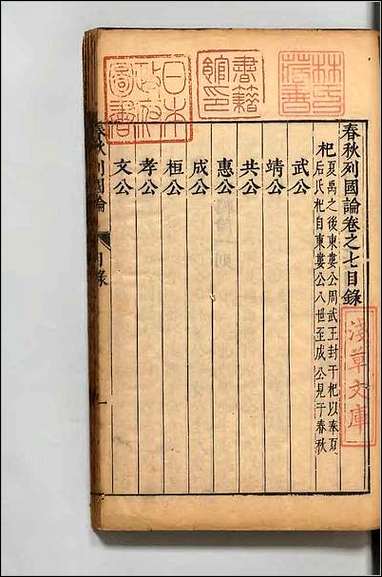 林氏藏書
書籍館印
日本政府圖書
春秋列國論卷之七目錄
淺草文庫
杞夏禹之後東婁公周武王封于杞以奉夏
后氏杞自東婁公八世至成公見于春秋
武公
靖公
共公
惠公
成公
桓公
孝公
文公
春秋列國論 目錄 一